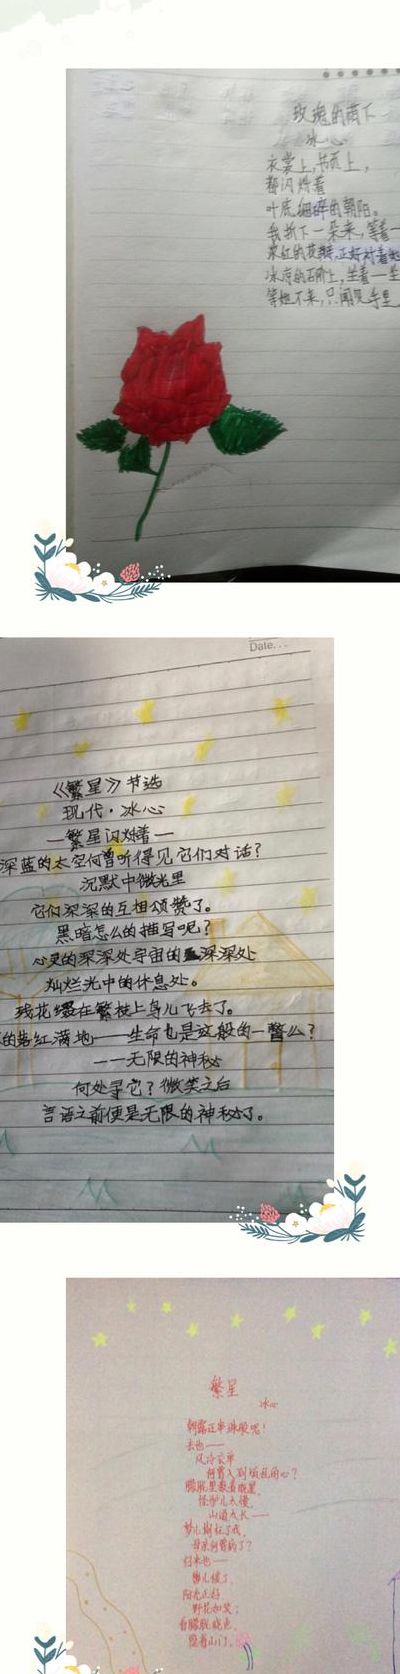 玫瑰的荫下
冰心
衣裳上,书页上,
都闪烁着
叶底细碎的朝阳。
我折下一朵来,等着一
浓红的花瓣,正好对着她
冰凉的石阶上,坐着一坐
等她不来,只闻见手里
Date...
《繁星》节选
现代·冰心
—繁星闪烁着—
深蓝的太空何曾听得见它们对话?
沉默中微光里
它们深深的互相颂赞了。
黑暗怎么的描写呢?
心灵的深深处宇宙的深深处
灿烂光中的休息处。
残花缀在繁枝上鸟儿飞去了。
的落红满地——生命也是这般的一瞥么?
——无限的神秘
何处寻它?微笑之后
言语之前便是无限的神秘了。
繁星
冰心
朝露还串珠般呢!
去也——
风冷衣单
何曾入到烦乱的心?
朦胧里数着晓星,
怪驴儿太慢,
山道太长——
梦儿欺枉了我,
母亲何曾病了?
归来也——
辔儿缓了,
阳光正好,
野花如笑;
看朦胧晓色,
隐着山门。